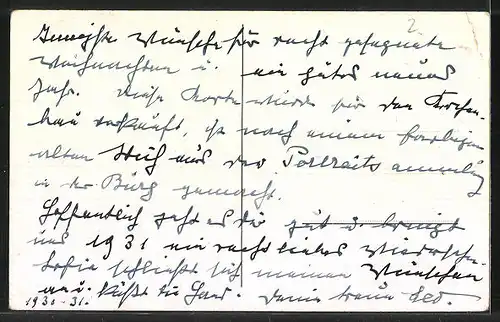 Innigste Wünsche für recht gesegnete
Weihnachten u. ein gutes neues
Jahr. Diese Karte wurde für den Kirchen-
bau verkauft, ist nach einem
alten Stich aus der Portraits
in der Burg gemacht.
Hoffentlich geht es dir gut u. bringt
uns 1931 ein recht liebes Wiedersehn.
Sofie schließt sich meinen Wünschen
an u. küßt die Hand. Deine treue
1930-31.